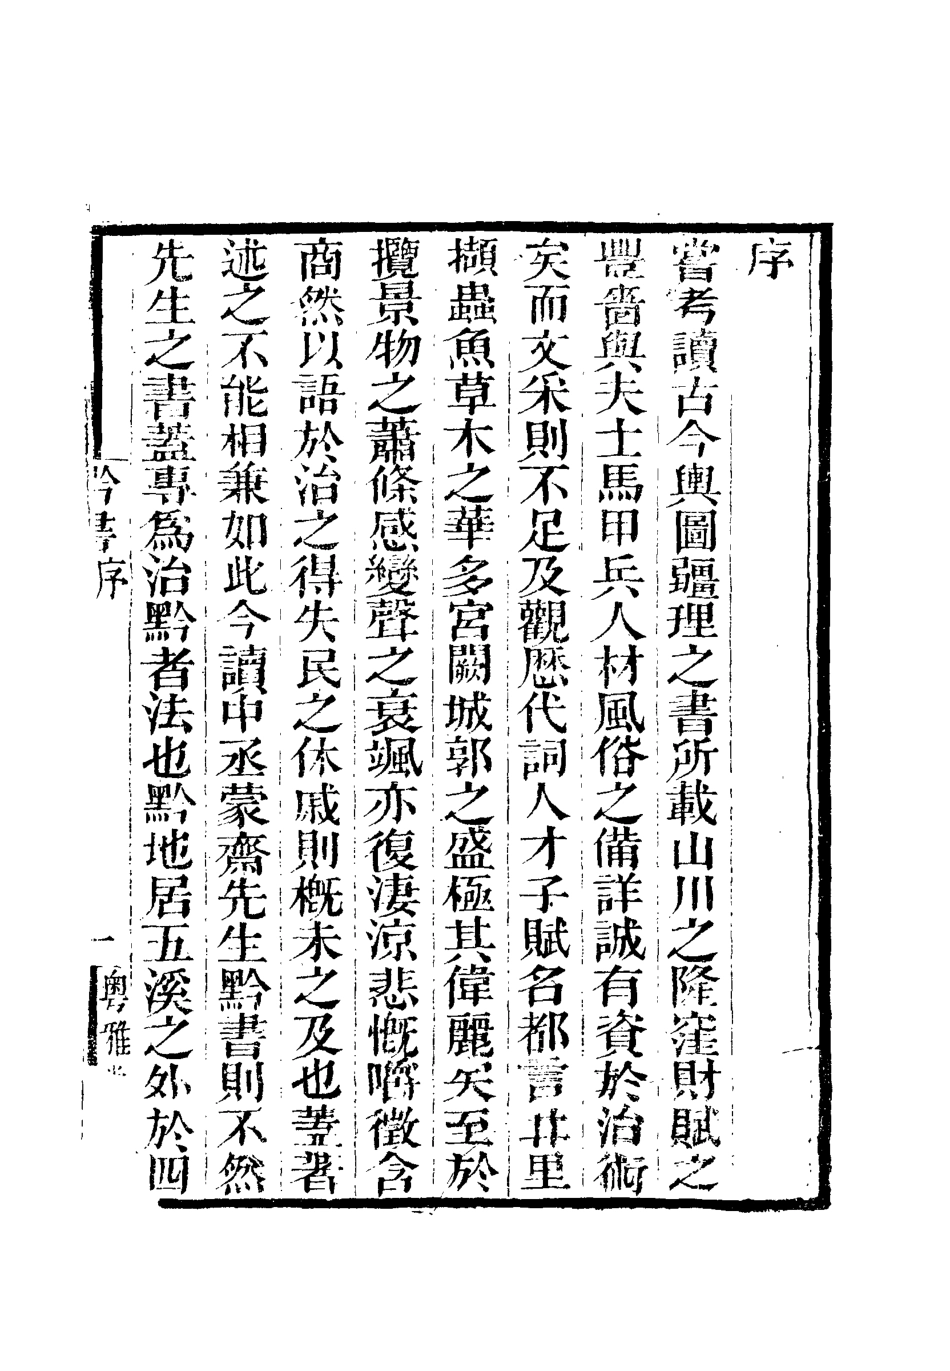 序
嘗考讀古今輿圖疆理之書所載山川之隆窪財賦之
豐嗇與夫士馬甲兵人材風俗之備詳誠有資於治術
矣而文采則不足及觀歷代詞人才子賦名都言北里
擷蟲魚草木之華多宮闕城郭之盛極其偉麗矣至於
攬景物之蕭條感變聲之衰颯亦復淒涼悲慨嚼徵含
商然以語於治之得失民之休戚則槪未之及也蓋著
述之不能相兼如此今讀中丞蒙齋先生黔書則不然
先生之書蓋專爲治黔者法也黔地居五溪之外於四
黔書序
一
粵雅